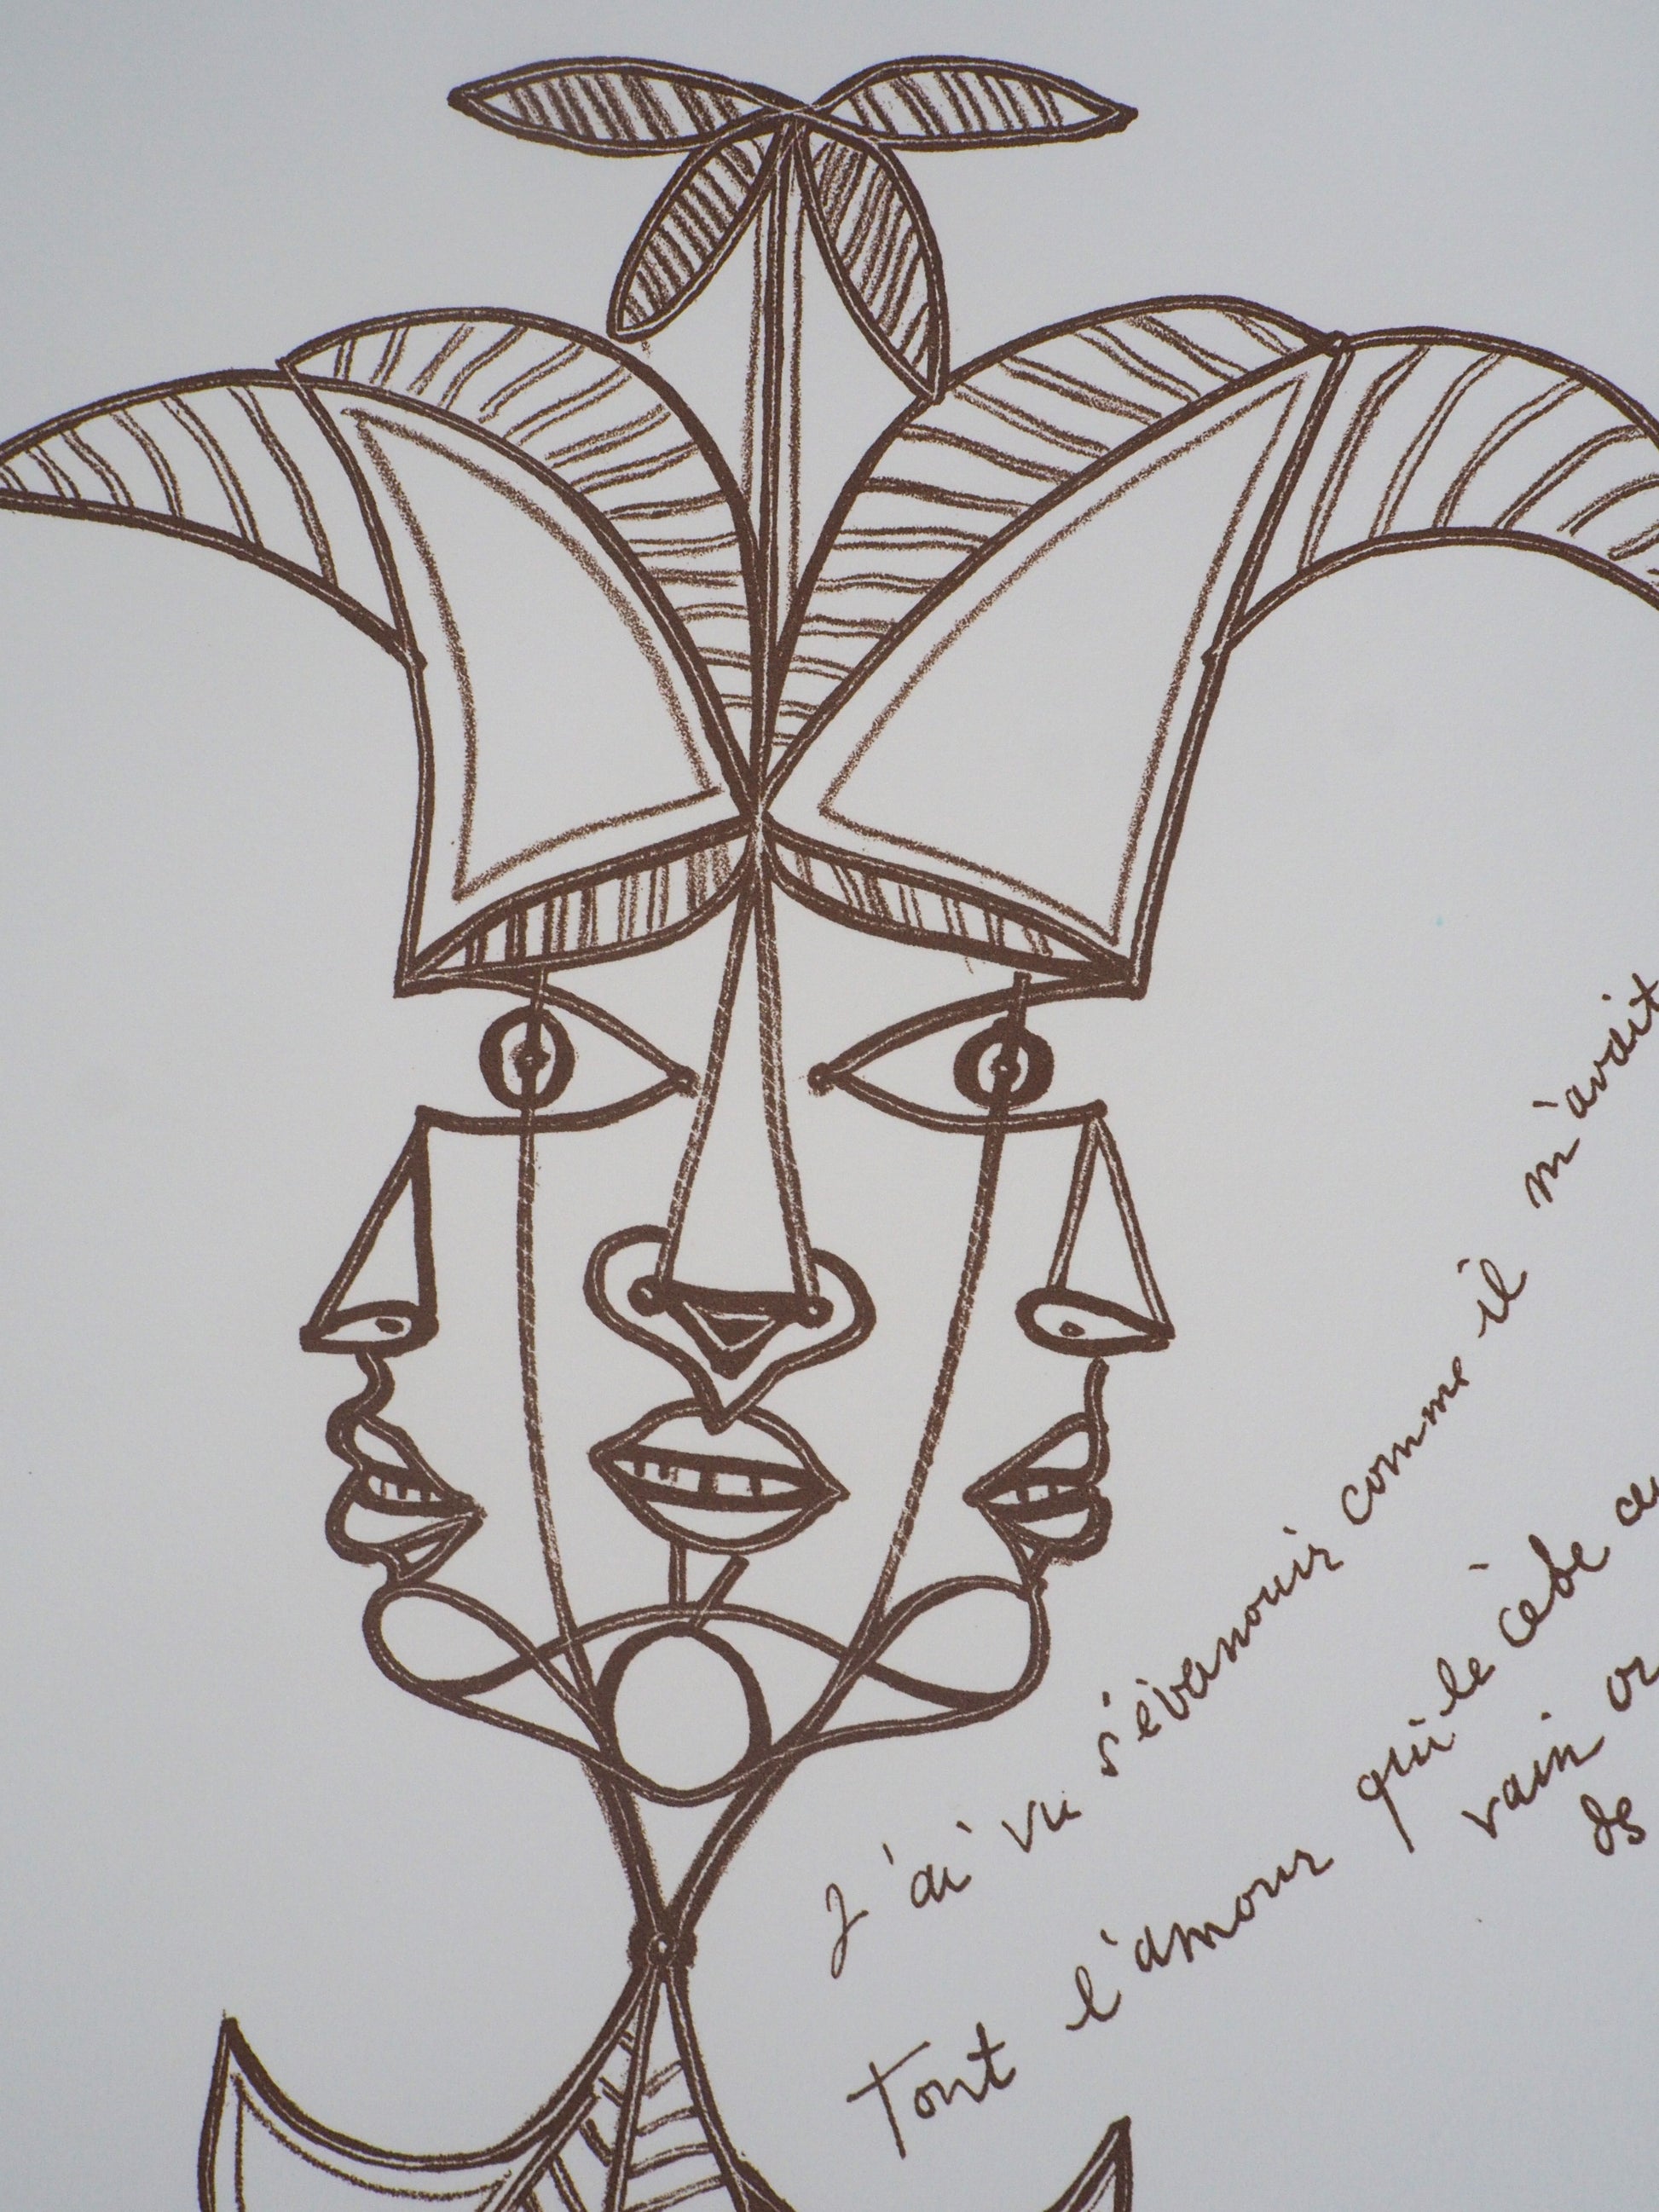 J'ai vu s'évanouir comme il m'avait
Tout l'amour qui le
vain